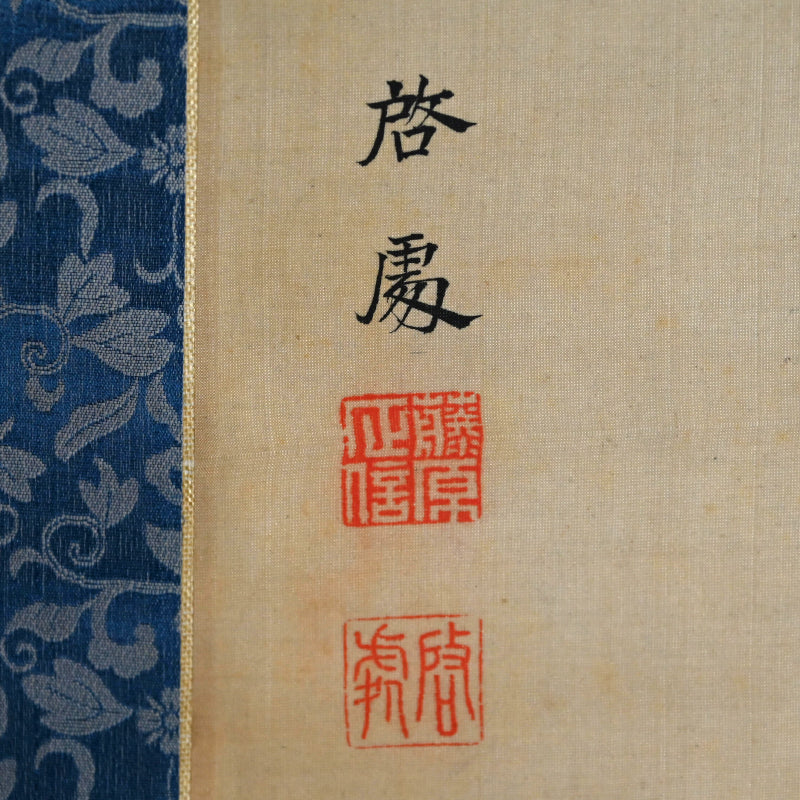 啓
處
藤原
正信
啓
處